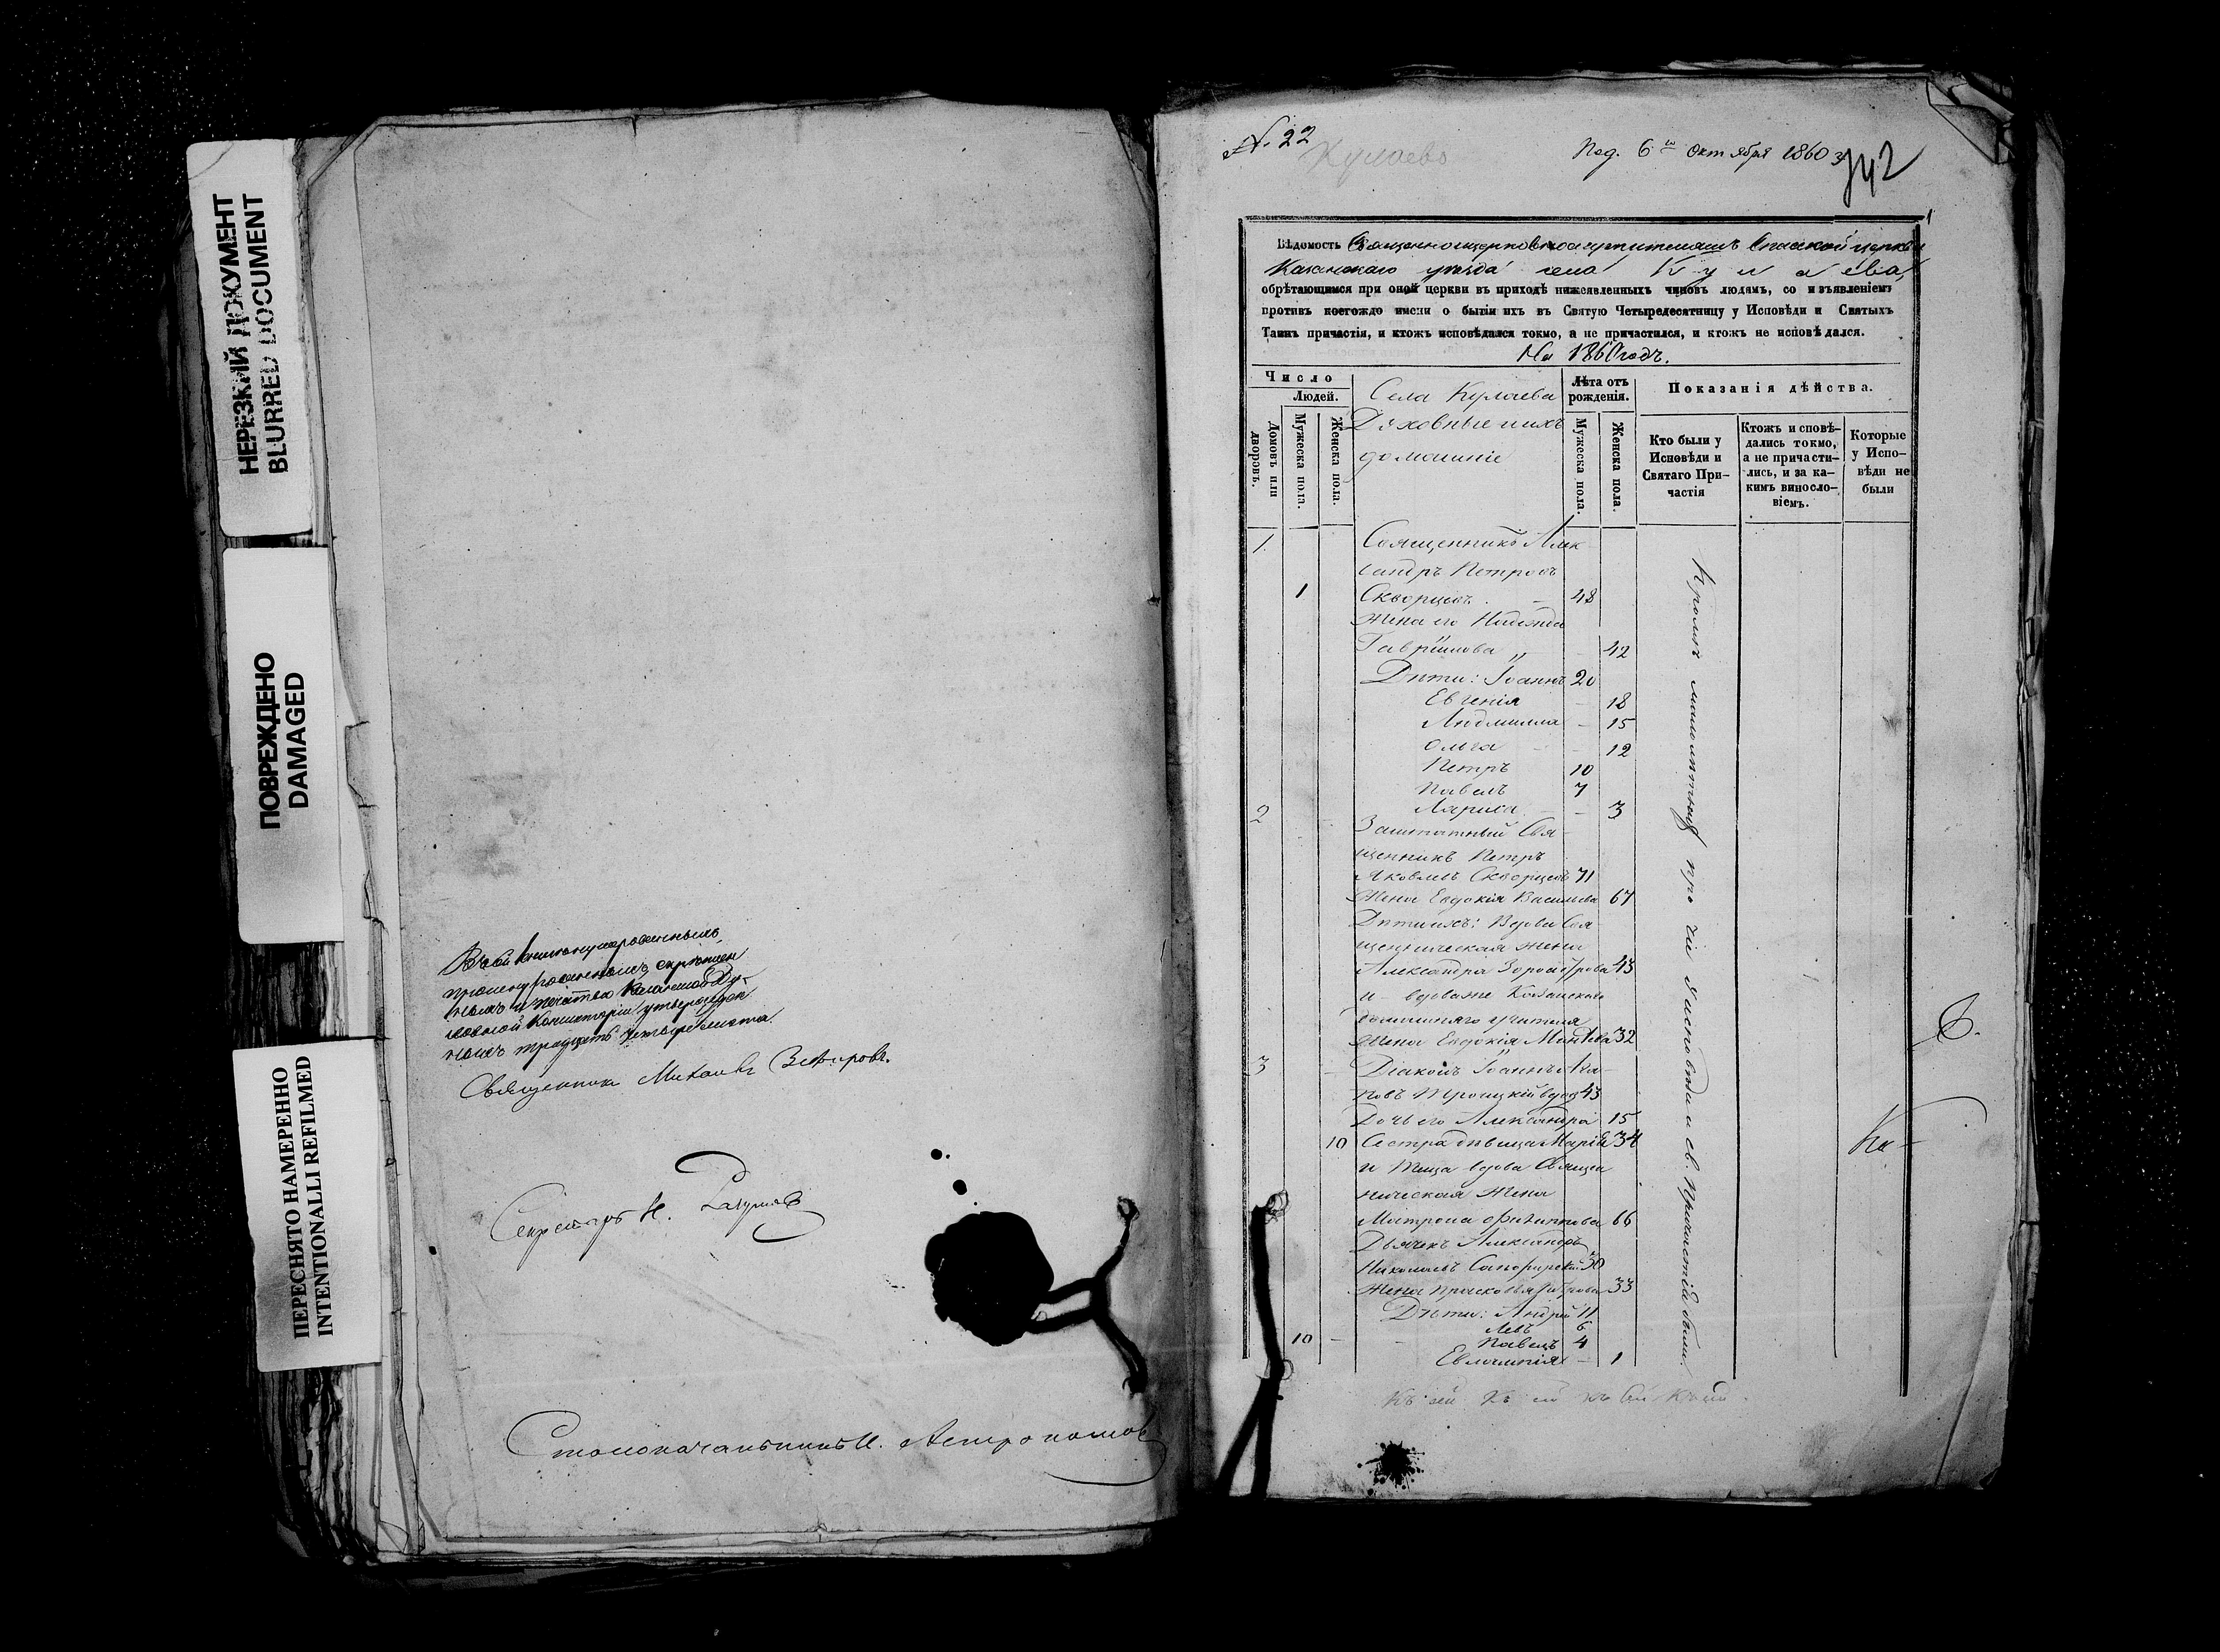 НЕРЕЗКИЙ ДОКУМЕНТ
BLURRED DOCUMENT
ПОВРЕЖДЕНО
DAMAGED
ПЕРЕСНЯТО НАМЕРЕННО
INTENTIONALLI REFILMED
прошнурованныхъ, скрѣплен
ныхъ и печатью Казанской Ду-
ховной Консисторіи утвержден
ныхъ тридцать четыре листа.
Священникъ Михаилъ Зефировъ.
Секретарь И. Разумовъ
Столоначальникъ И. Астрономовъ
№ 22
Кулаево
Под. 6го Октября 1860
742
1
Вѣдомость Священноцерковнослужителямъ Спасской церкви
Казанскаго уѣзда села Кулаева,
обрѣтающимся при оной церкви въ приходѣ нижеявленныхъ чиновъ людямъ, со изъявленіемъ
противъ коегождо имени о бытіи ихъ въ Святую Четыредесятницу у Исповѣди и Святыхъ
Таинъ причастія, и ктожъ исповѣдался токмо, а не причастился, и ктожъ не исповѣдался.
На 1860 годъ.
Число
Людей.
Домовъ или дворовъ.
Мужеска пола.
Женска пола.
Села Кулаева
Духовные и ихъ
домашніе
Лѣта отъ рожденія.
Мужеска пола.
Женска пола.
Показанія дѣйства.
Кто были у Исповѣди и Святаго Причастія
Ктожъ исповѣдались токмо, а не причастились, и за какимъ винословіемъ.
Которые у Исповѣди не были
1. Священникъ Алек
сандръ Петровъ
1 Скворцовъ. – 48
Жена его Надежда
Гавріилова „ – 42
Дѣти: Іоаннъ 20
Евгенія – 18
Людмилла – 15
Ольга – 12
Петръ 10
Павелъ 7
Лариса – 3
2 Заштатный Свя-
щенникъ Петръ
Яковлевъ Скворцовъ 71
Жена Евдокія Васильева 67
Дѣти ихъ: Вдовы Свя
щенническая жена
Александра 43
и – вдова же Казанскаго
домашняго учителя
жена Евдокія 32
3 – Діаконъ Іоаннъ
Троицкій вдов 43
Дочь его Александра 15
10 Сестра дѣвица Марія 34
и теща вдова Священ
ническая жена
Матрона Филиппова 66
Дьячекъ Александръ
Николаевъ 30
Жена Прасковья Петрова 33
Дѣти: Андрей 11
Левъ 6
10 – – Павелъ 4
Евлампія – 1
Кромѣ малолѣтнихъ прочіи у исповѣди и св. Причастія были.